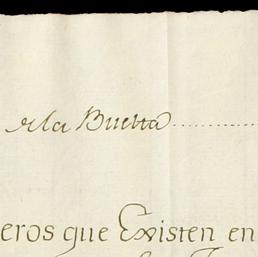 de la Buelta
eros que Existen en